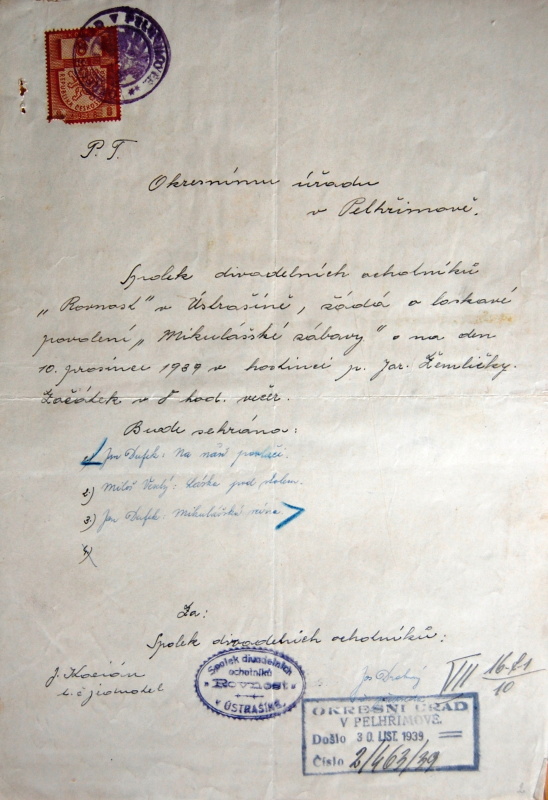 P. T.
Okresnímu úřadu
v Pelhřimově.
Spolek divadelních ochotníků
„Rovnost" v Ústrašíně, žádá o laskavé
povolení „Mikulášské zábavy" na den
10. prosince 1939 v hostinci p. Jar. Žemličky.
Začátek v 8 hod. večer.
Bude sehráno:
Jan Dufek: Na naší
2.) Miloš Veselý: Láska pod
3.) Jan Dufek: Mikulášská
4)
Za:
Spolek divadelních ochotníků:
J. Kocián
t. č. jednatel
Spolek divadelních
ochotníků
Rovnost
v ÚSTRAŠÍNĚ
VII 16-81
10
OKRESNÍ ÚŘAD
V PELHŘIMOVĚ.
Došlo 30. LIST. 1939
Číslo 2/463/39